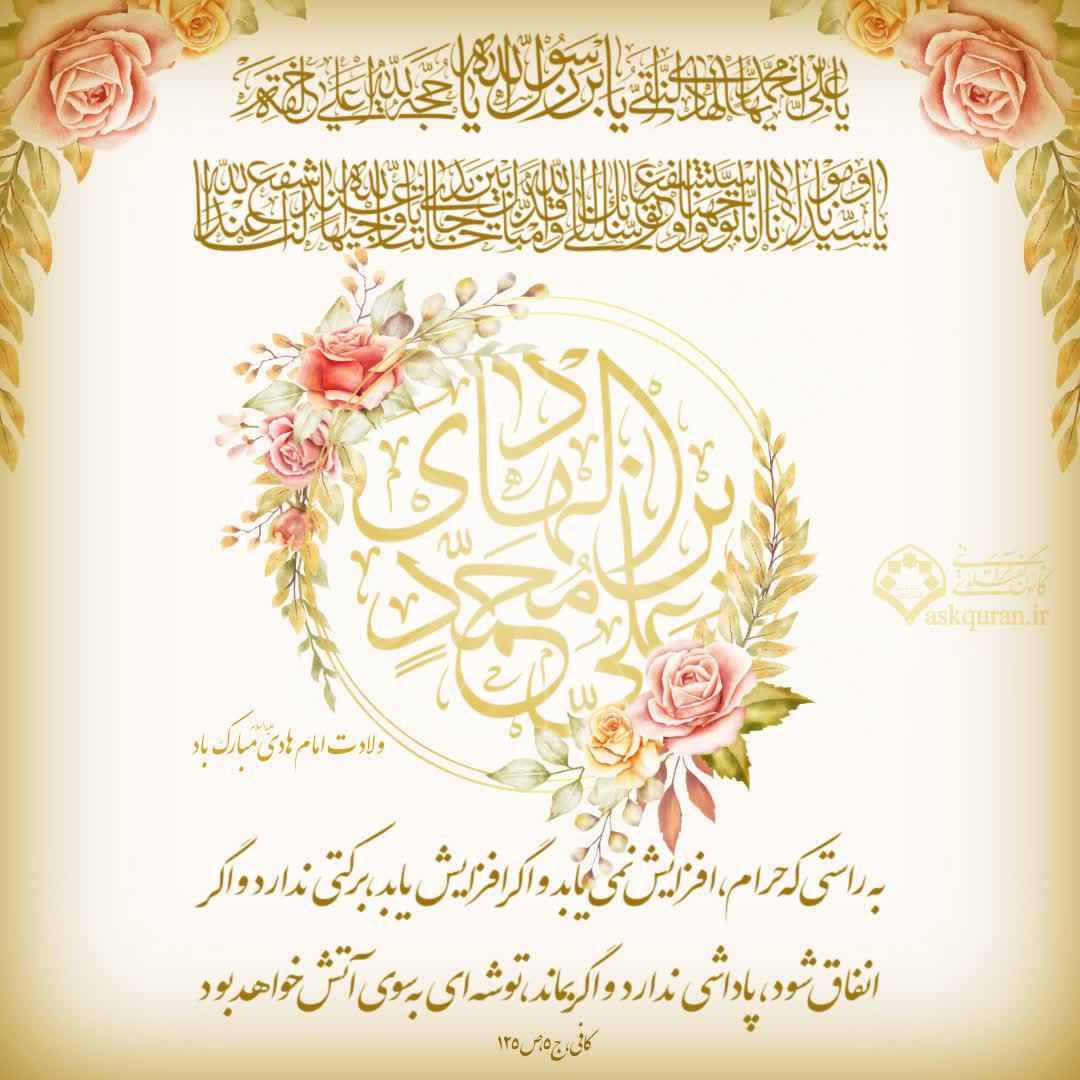 يا علي بن محمد ايها الهادي النقي يا بن رسول الله يا حجة الله علي خلقه
يا سيدنا و مولانا انا توجهنا و استشفعنا و توسلنا بك الي الله و قدمناك بين يدي حاجاتنا يا وجيها عند الله اشفع لنا عند الله
علي بن محمد الهادي
askquran.ir
ولادت امام هادی علیه‌السلام مبارک باد
به راستی که حرام، افزایش نمی یابد و اگر افزایش یابد، برکتی ندارد و اگر
انفاق شود، پاداشی ندارد و اگر بماند، توشه ای به سوی آتش خواهد بود
کافی، ج۵، ص۱۲۵